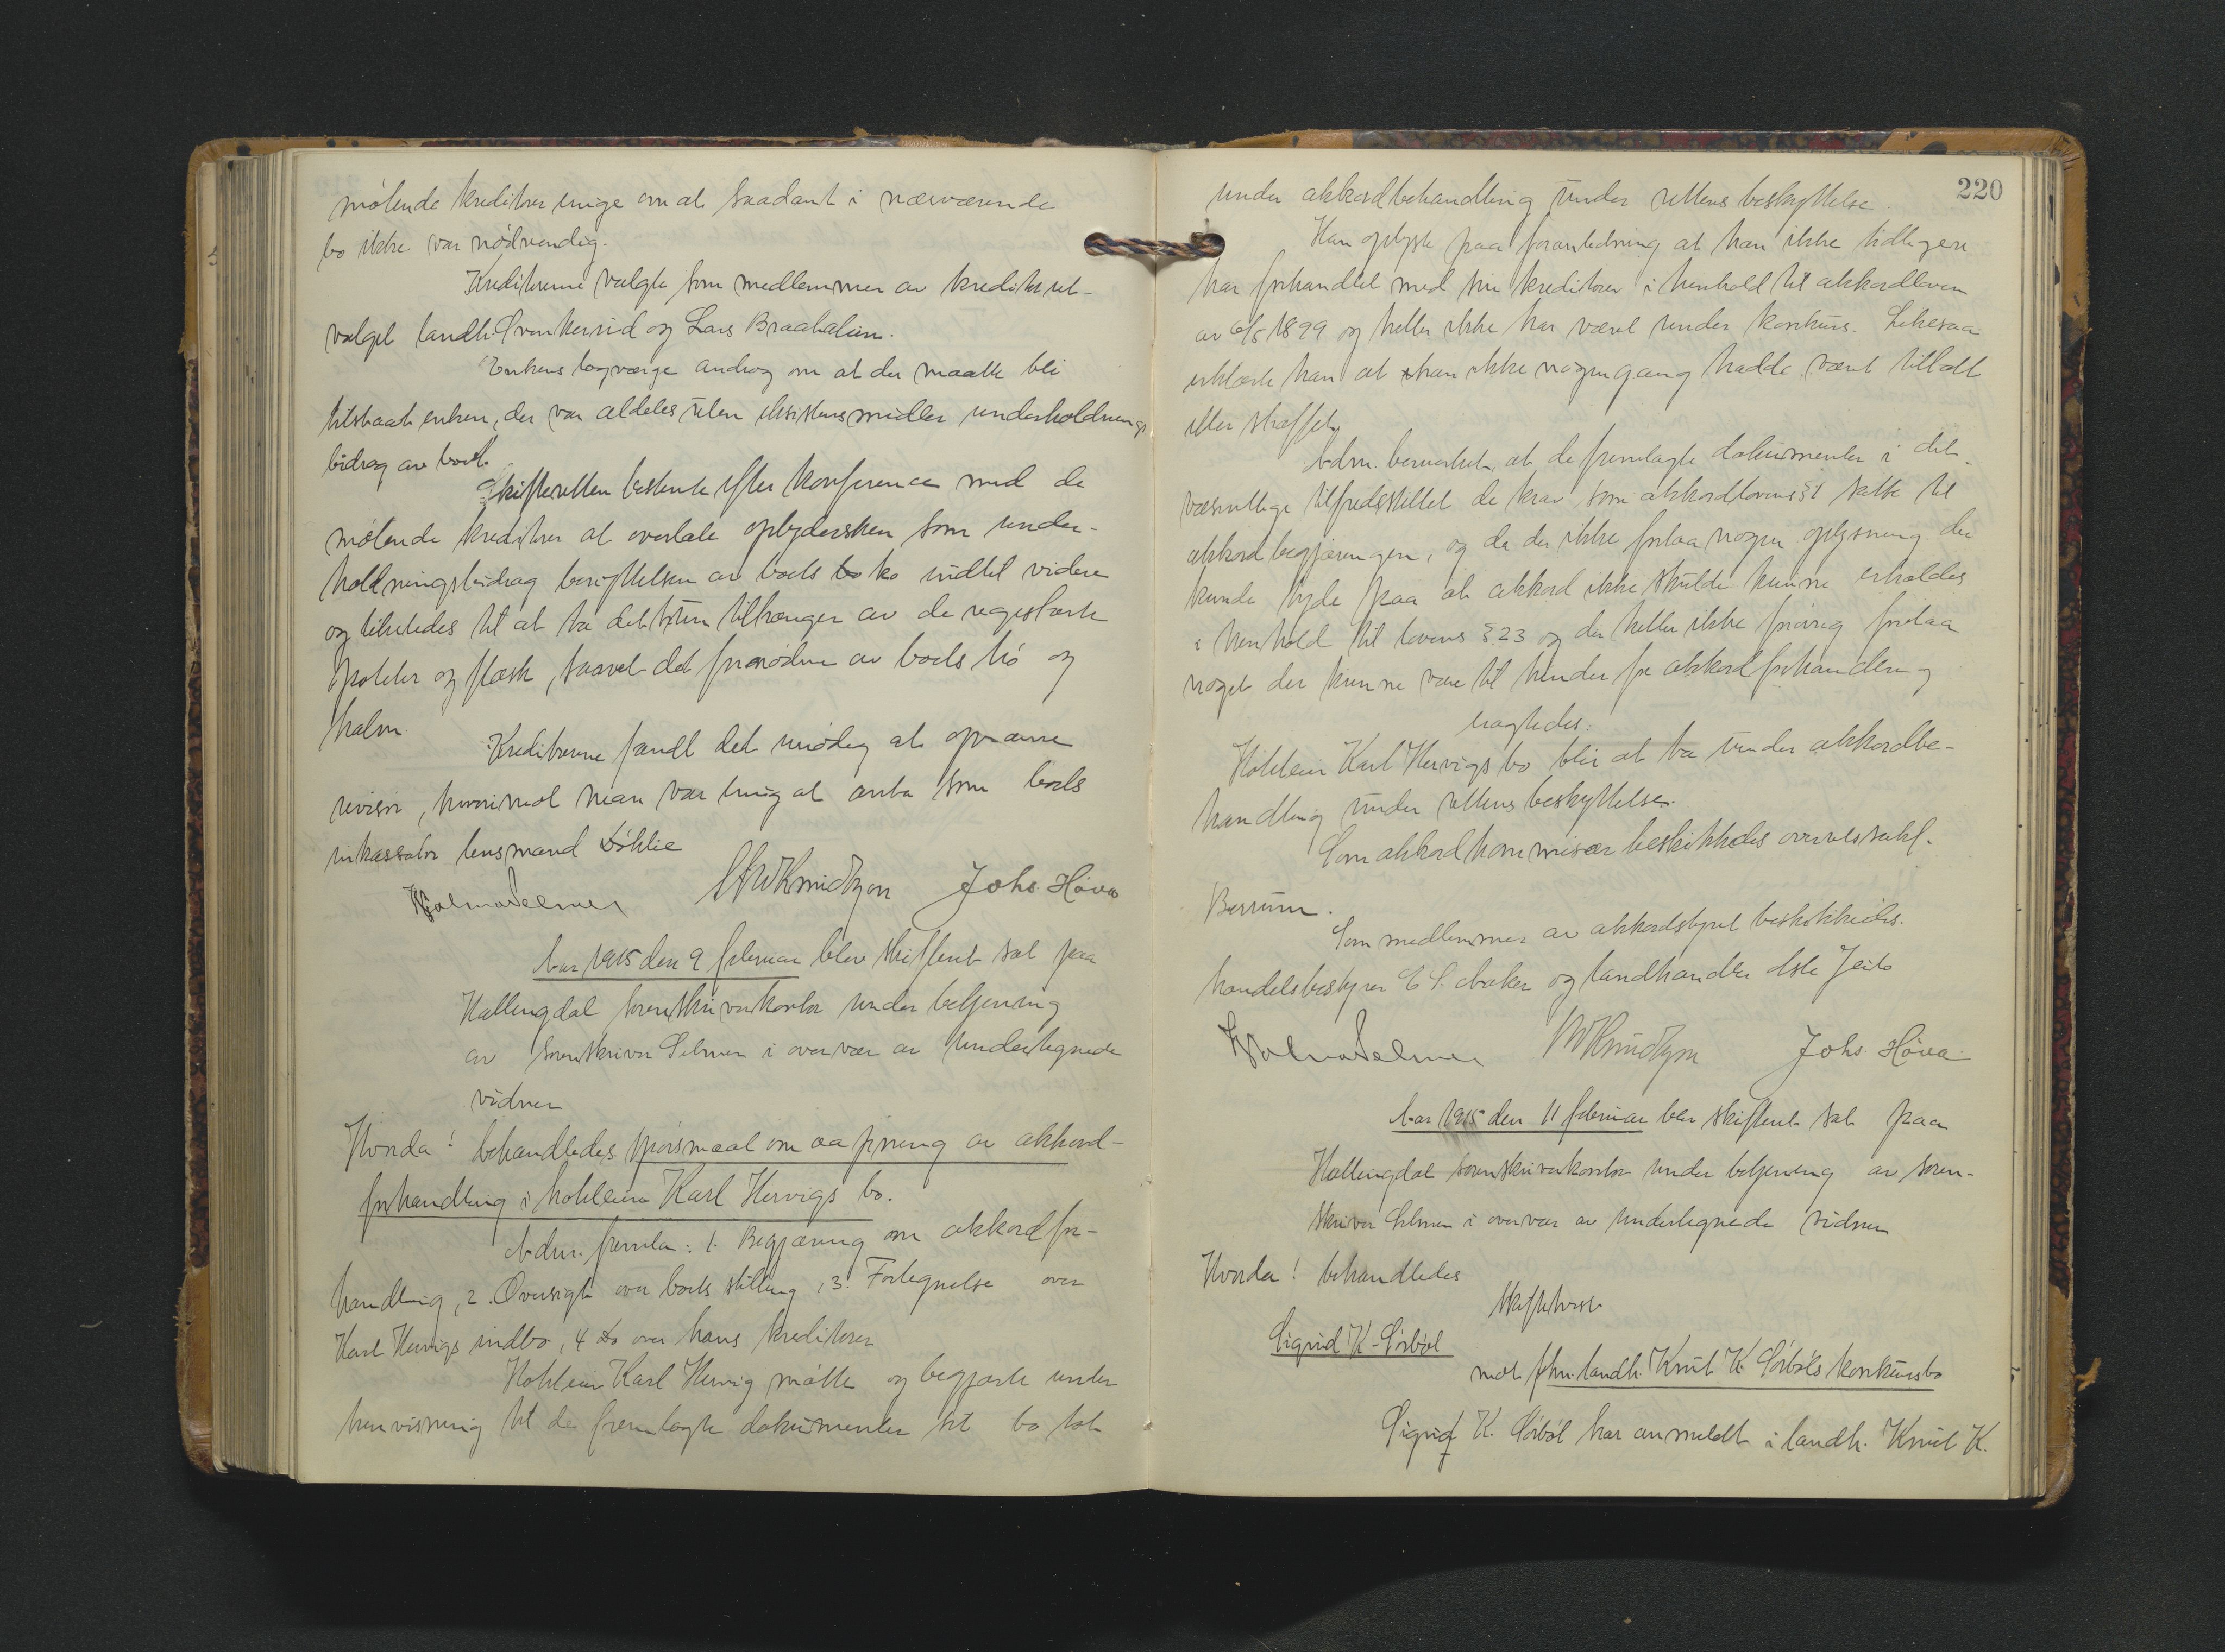 møtende kreditorer enige om at saadant i nærværende
bo ikke var nødvendig.
Kreditorerne valgte som medlemmer av kreditorut-
valget landh. Svenkerud og Lars Braathalien.
Enkens lagværge androg om at der maatte bli
tilstaat enken, der var aldeles uten eksistensmidler underholdnings
bidrag av boet.
Skifteretten bestemte efter konference med de
møtende kreditorer at overlate opbydersken som under-
holdningsbidrag benyttelsen av boets bo ko indtil videre
og tillotedes til at ta det hun tiltrænger av de registrerte
poteter og flæsk, saavel det fornødne av boets hø og
halm.
Kreditorerne fandt det unødig at opnævne
revisor, hvorimot man var enig at anta som boets
inkassator lensmand Døhlie
Hjalmar Selmer Knudtzon Johs. Høva
Aar 1915 den 9 februar blev skifteret sat paa
Hallingdal sorenskriverkontor under betjening
av sorenskriver Selmer i overvær av undertegnede
vidner
Hvorda! behandledes spørsmaal om aapning av akkord-
forhandling i hotleier Karl Hervigs bo.
Adm. fremla: 1. Begjæring om akkordfor-
handling, 2. Oversigt over boets stilling, 3. Fortegnelse over
Karl Hervigs indbo, 4 do over hans kreditorer
Hotleier Karl Hervig møtte og begjærte under
henvisning til de fremlagte dokumenter sit bo tat
220
under akkordbehandling under rettens beskyttelse.
Han oplyste paa foranledning at han ikke tidligere
har forhandlet med sine kreditorer i henhold til akkordloven
av 6/5 1899 og heller ikke har været under konkurs. Likesaa
erklærte han at han ikke nogengang hadde været tiltalt
eller straffet.
Adm. bemerket, at de fremlagte dokumenter i det
væsentlige tilfredsstillet de krav som akkordlovens § 1 satte til
akkordbegjæringen, og da der ikke forlaa nogen oplysning der
kunde tyde paa at akkord ikke skulde kunne erholdes
i henhold til lovens § 23 og der heller ikke forøvrig forelaa
noget der kunne være til hinder for akkordforhandling
vagtedes:
Hotleier Karl Hervigs bo blir at ta under akkordbe-
handling under rettens beskyttelse.
Som akkordkommisær beskikkedes overrettssakf.
Berrum.
Som medlemmer av akkordstyret beskikkedes.
handelsbestyrer E. S. Aaker og landhandler Asle Jeilo
Hjalmar Selmer Knudtzon Johs. Høva
Aar 1915 den 11 februar blev skifteret sat paa
Hallingdal sorenskriverkontor under betjening av soren-
skriver Selmer i overvær av undertegnede vidner
Hvorda! behandledes
Skiftetvist
Sigrid K. Sørbøl
mot fhv. landh. Knut K. Sørbøls konkursbo
Sigrid K. Sørbøl har anmeldt i landh. Knut K.